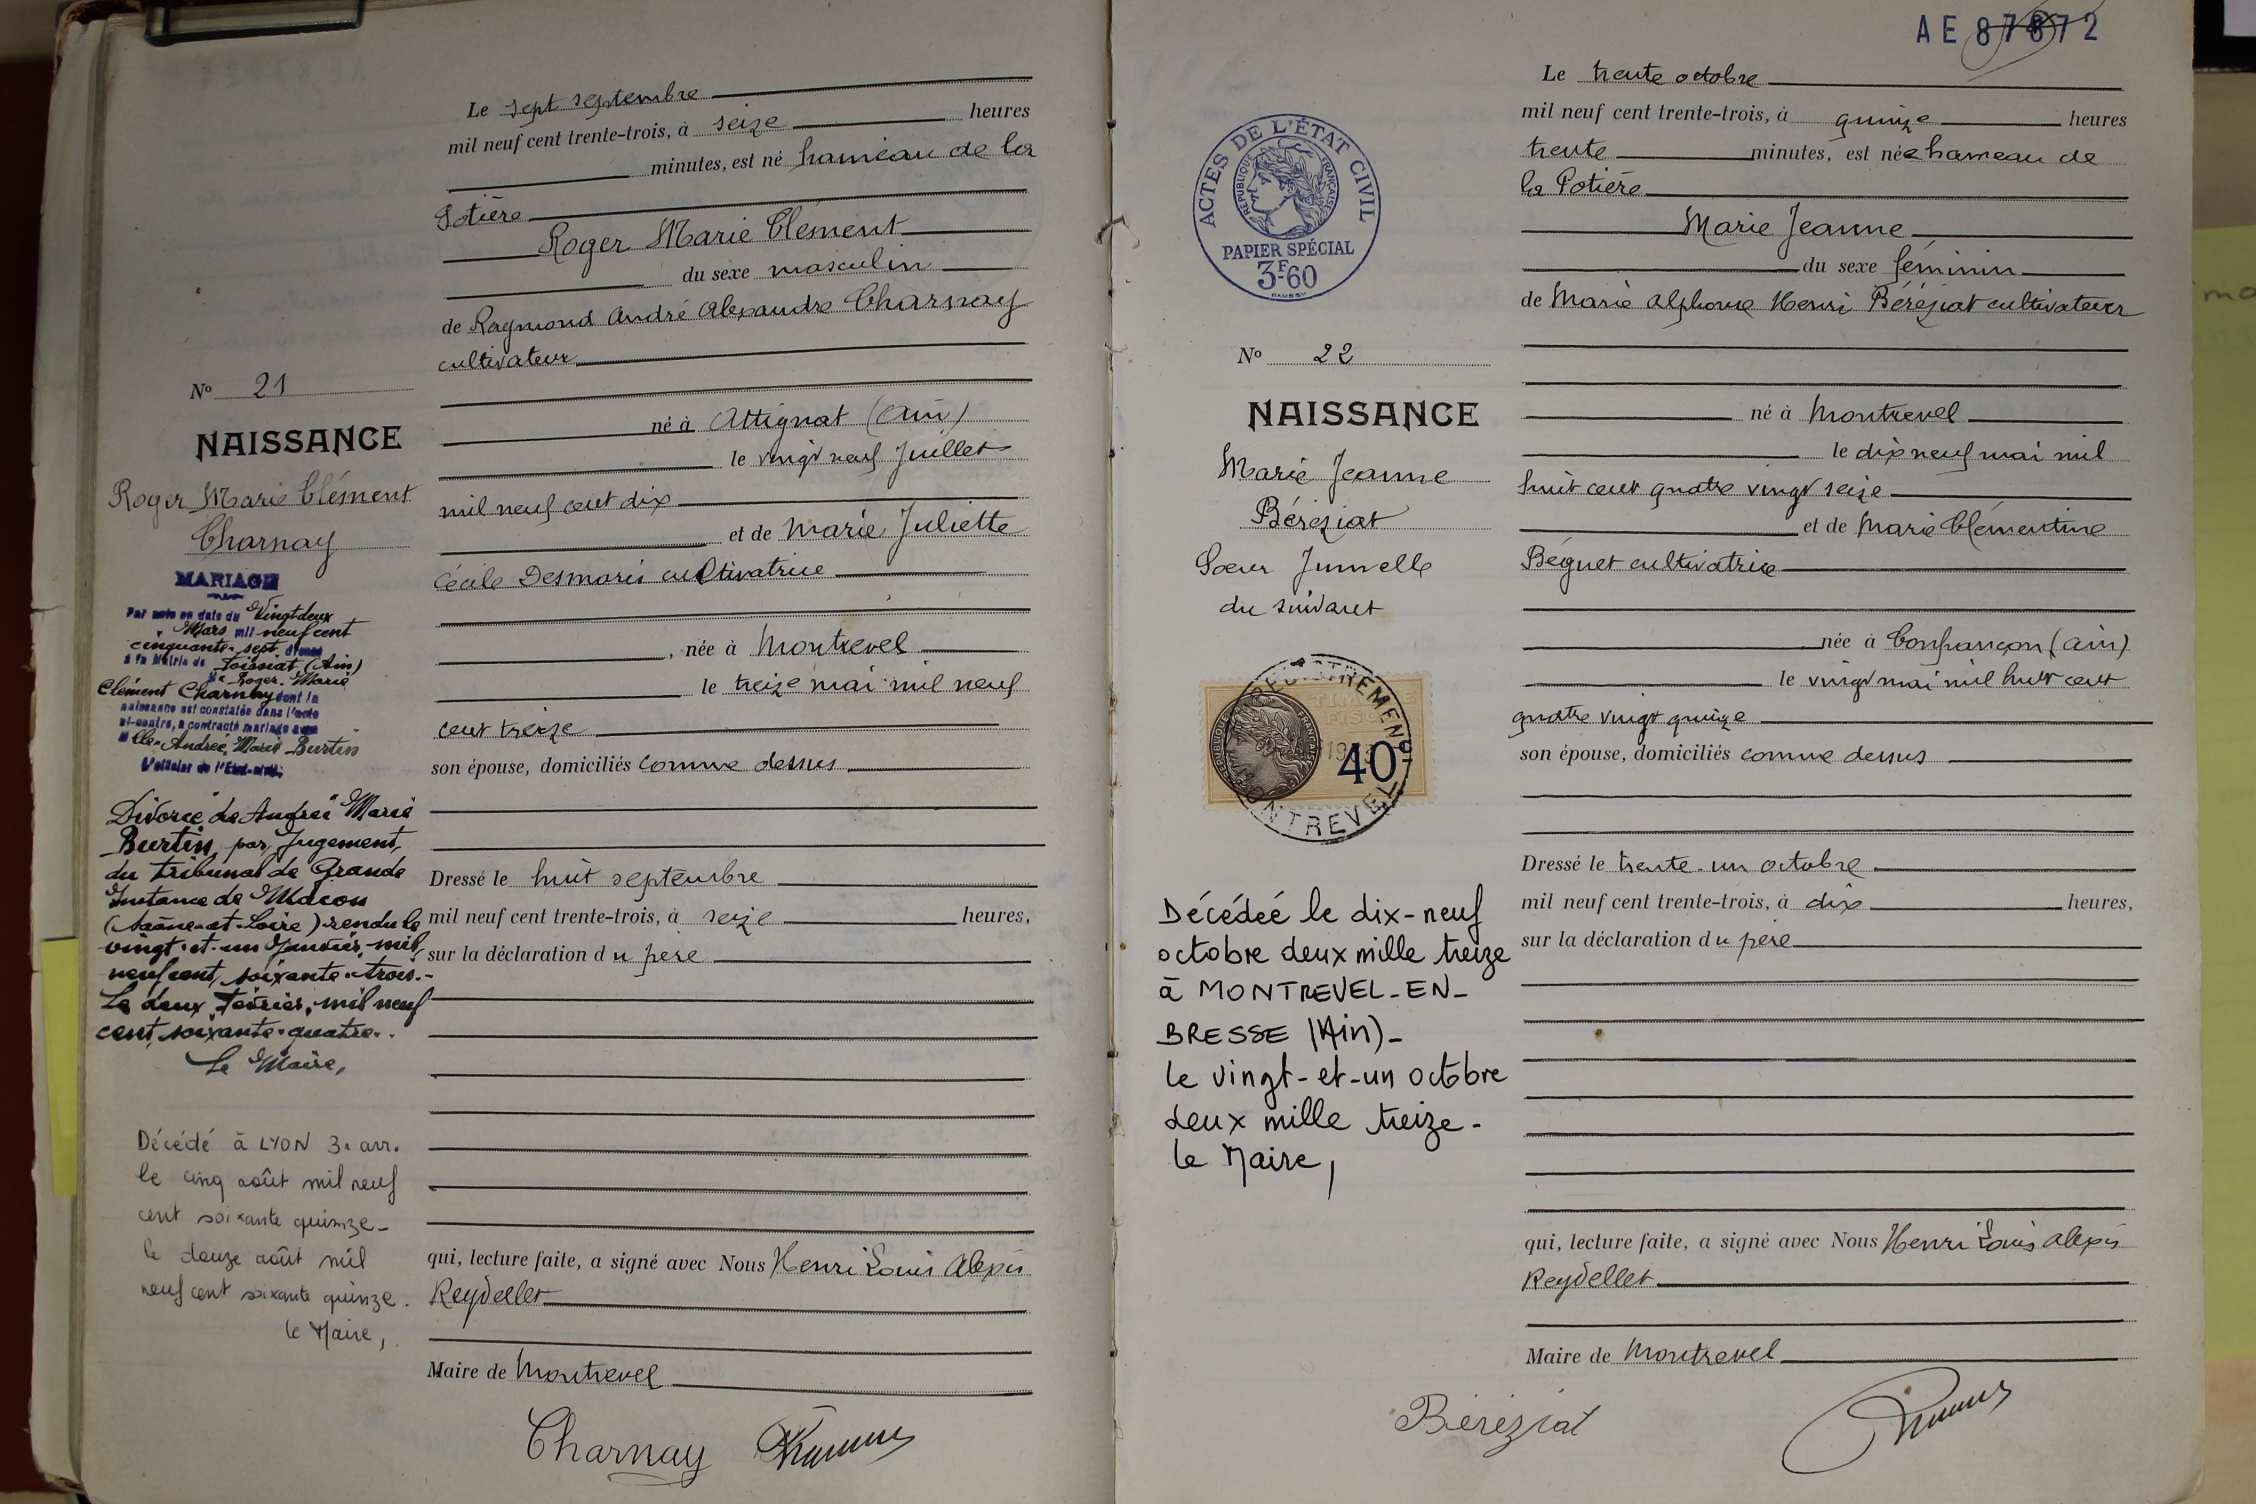 Le sept septembre
mil neuf cent trente-trois, à seize heures
minutes, est né hameau de la
Potière
Roger Marie Clément
du sexe masculin
de Raymond André Alexandre Charnay
cultivateur
né à Attignat (Ain)
le vingt neuf Juillet
mil neuf cent dix
et de Marie Juliette
Cécile Desmaris cultivatrice
, née à Montrevel
le treize mai mil neuf
cent treize
son épouse, domiciliés comme dessus
Dressé le huit septembre
mil neuf cent trente-trois, à seize heures,
sur la déclaration du père
qui, lecture faite, a signé avec Nous Henri Louis Alexis
Reydellet
Maire de Montrevel
Charnay
No 21
NAISSANCE
Roger Marie Clément
Charnay
MARIAGE
Par acte en date du Vingt-deux
Mars mil neuf cent
cinquante-sept, dressé
à la Mairie de Foissiat (Ain)
Roger Marie
Clément Charnay dont la
naissance est constatée dans l'acte
ci-contre, a contracté mariage avec
Mlle Andrée Marie Burtin
L'officier de l'Etat-civil,
Divorcé de Andrée Marie
Burtin, par Jugement,
du Tribunal de Grande
Instance de Macon
(Saône-et-Loire) rendu le
vingt-et-un Janvier, mil
neuf cent, soixante-trois.-
Le deux, Février, mil neuf
cent, soixante-quatre.
Le Maire,
Décédé à LYON 3e arr.
le cinq août mil neuf
cent soixante quinze-
le douze août mil
neuf cent soixante quinze.
le Maire,
AE 87872
ACTES DE L'ÉTAT CIVIL
RÉPUBLIQUE FRANÇAISE
PAPIER SPÉCIAL
3F-60
No 22
NAISSANCE
Marie Jeanne
Béréziat
Soeur Jumelle
du suivant
40
MONTREVEL
Décédée le dix-neuf
octobre deux mille treize
à MONTREVEL-EN-
BRESSE (Ain)-
le vingt-et-un octobre
deux mille treize-
le Maire,
Le trente octobre
mil neuf cent trente-trois, à quinze heures
trente minutes, est née hameau de
la Potière
Marie Jeanne
du sexe féminin
de Marie Alphonse Henri Béréziat cultivateur
né à Montrevel
le dix neuf mai mil
huit cent quatre vingt seize
et de Marie Clémentine
Béguet cultivatrice
née à Confrançon (Ain)
le vingt mai mil huit cent
quatre vingt quinze
son épouse, domiciliés comme dessus
Dressé le trente-un octobre
mil neuf cent trente-trois, à dix heures,
sur la déclaration du père
qui, lecture faite, a signé avec Nous Henri Louis Alexis
Reydellet
Maire de Montrevel
Béréziat